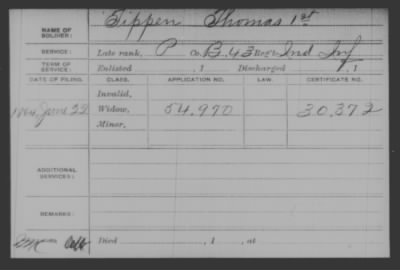 NAME OF SOLDIER: Tippen Thomas 1st
SERVICE: Late rank, P Co. B, 43 Reg't Ind Inf
TERM OF SERVICE: Enlisted , 1 Discharged , 1
DATE OF FILING. CLASS. APPLICATION NO. LAW. CERTIFICATE NO.
Invalid,
1864 June 22 Widow, 54.970 30.372
Minor,
ADDITIONAL SERVICES:
REMARKS:
Died , 1 , at